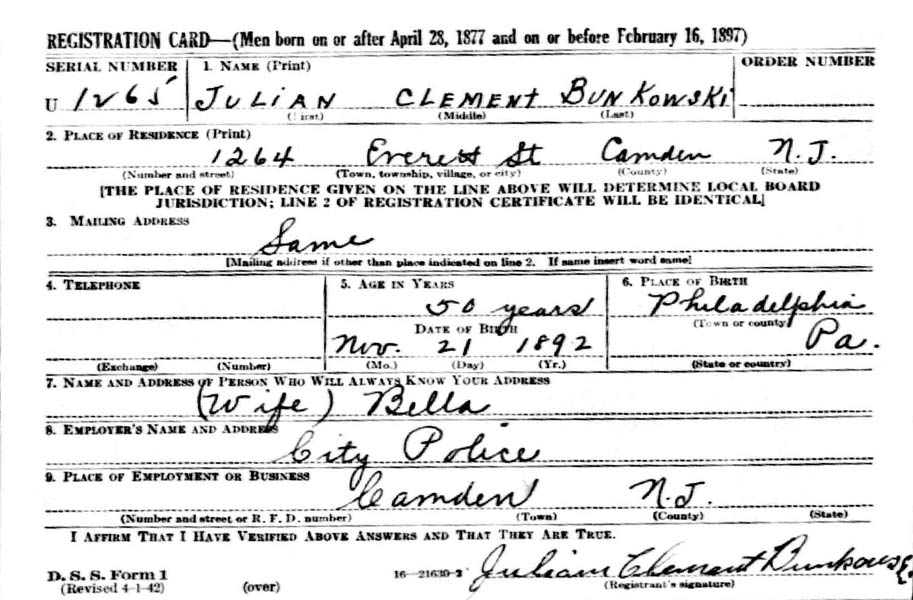 REGISTRATION CARD—(Men born on or after April 28, 1877 and on or before February 16, 1897)
SERIAL NUMBER 1. NAME (Print) ORDER NUMBER
U 1265 JULIAN CLEMENT BUNKOWSKI
(First) (Middle) (Last)
2. PLACE OF RESIDENCE (Print)
1264 Everett St Camden N.J.
(Number and street) (Town, township, village, or city) (County) (State)
[THE PLACE OF RESIDENCE GIVEN ON THE LINE ABOVE WILL DETERMINE LOCAL BOARD
JURISDICTION; LINE 2 OF REGISTRATION CERTIFICATE WILL BE IDENTICAL]
3. MAILING ADDRESS
Same
[Mailing address if other than place indicated on line 2. If same insert word same]
4. TELEPHONE 5. AGE IN YEARS 6. PLACE OF BIRTH
50 years Philadelphia
DATE OF BIRTH (Town or county)
Nov. 21 1892 Pa.
(Exchange) (Number) (Mo.) (Day) (Yr.) (State or country)
7. NAME AND ADDRESS OF PERSON WHO WILL ALWAYS KNOW YOUR ADDRESS
(Wife) Bella
8. EMPLOYER'S NAME AND ADDRESS
City Police
9. PLACE OF EMPLOYMENT OR BUSINESS
Camden N.J.
(Number and street or R. F. D. number) (Town) (County) (State)
I AFFIRM THAT I HAVE VERIFIED ABOVE ANSWERS AND THAT THEY ARE TRUE.
D. S. S. Form 1 16—21630-2 Julian Clement Bunkowski
(Revised 4-1-42) (over) (Registrant's signature)